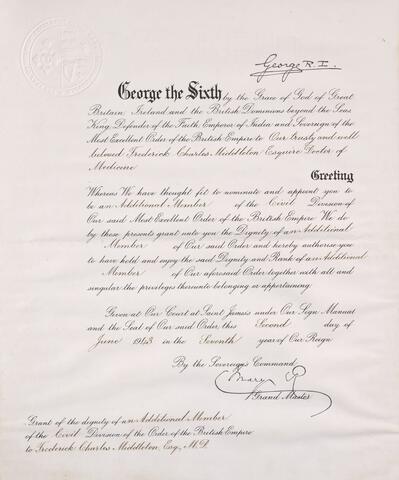 George R.I.
George the Sixth by the Grace of God of Great
Britain, Ireland and the British Dominions beyond the Seas
King, Defender of the Faith, Emperor of India and Sovereign of the
Most Excellent Order of the British Empire to Our trusty and well
beloved Frederick Charles Middleton Esquire Doctor of
Medicine
Greeting
Whereas We have thought fit to nominate and appoint you to
be an Additional Member of the Civil Division of
Our said Most Excellent Order of the British Empire We do
by these presents grant unto you the Dignity of an Additional
Member of Our said Order and hereby authorise you
to have hold and enjoy the said Dignity and Rank of an Additional
Member of Our aforesaid Order together with all and
singular the privileges thereunto belonging or appertaining.
Given at Our Court at Saint James's under Our Sign Manual
and the Seal of Our said Order this Second day of
June 1943 in the Seventh year of Our Reign
By the Sovereign's Command
Mary R
Grand Master
Grant of the dignity of an Additional Member
of the Civil Division of the Order of the British Empire
to Frederick Charles Middleton, Esq., M.D.